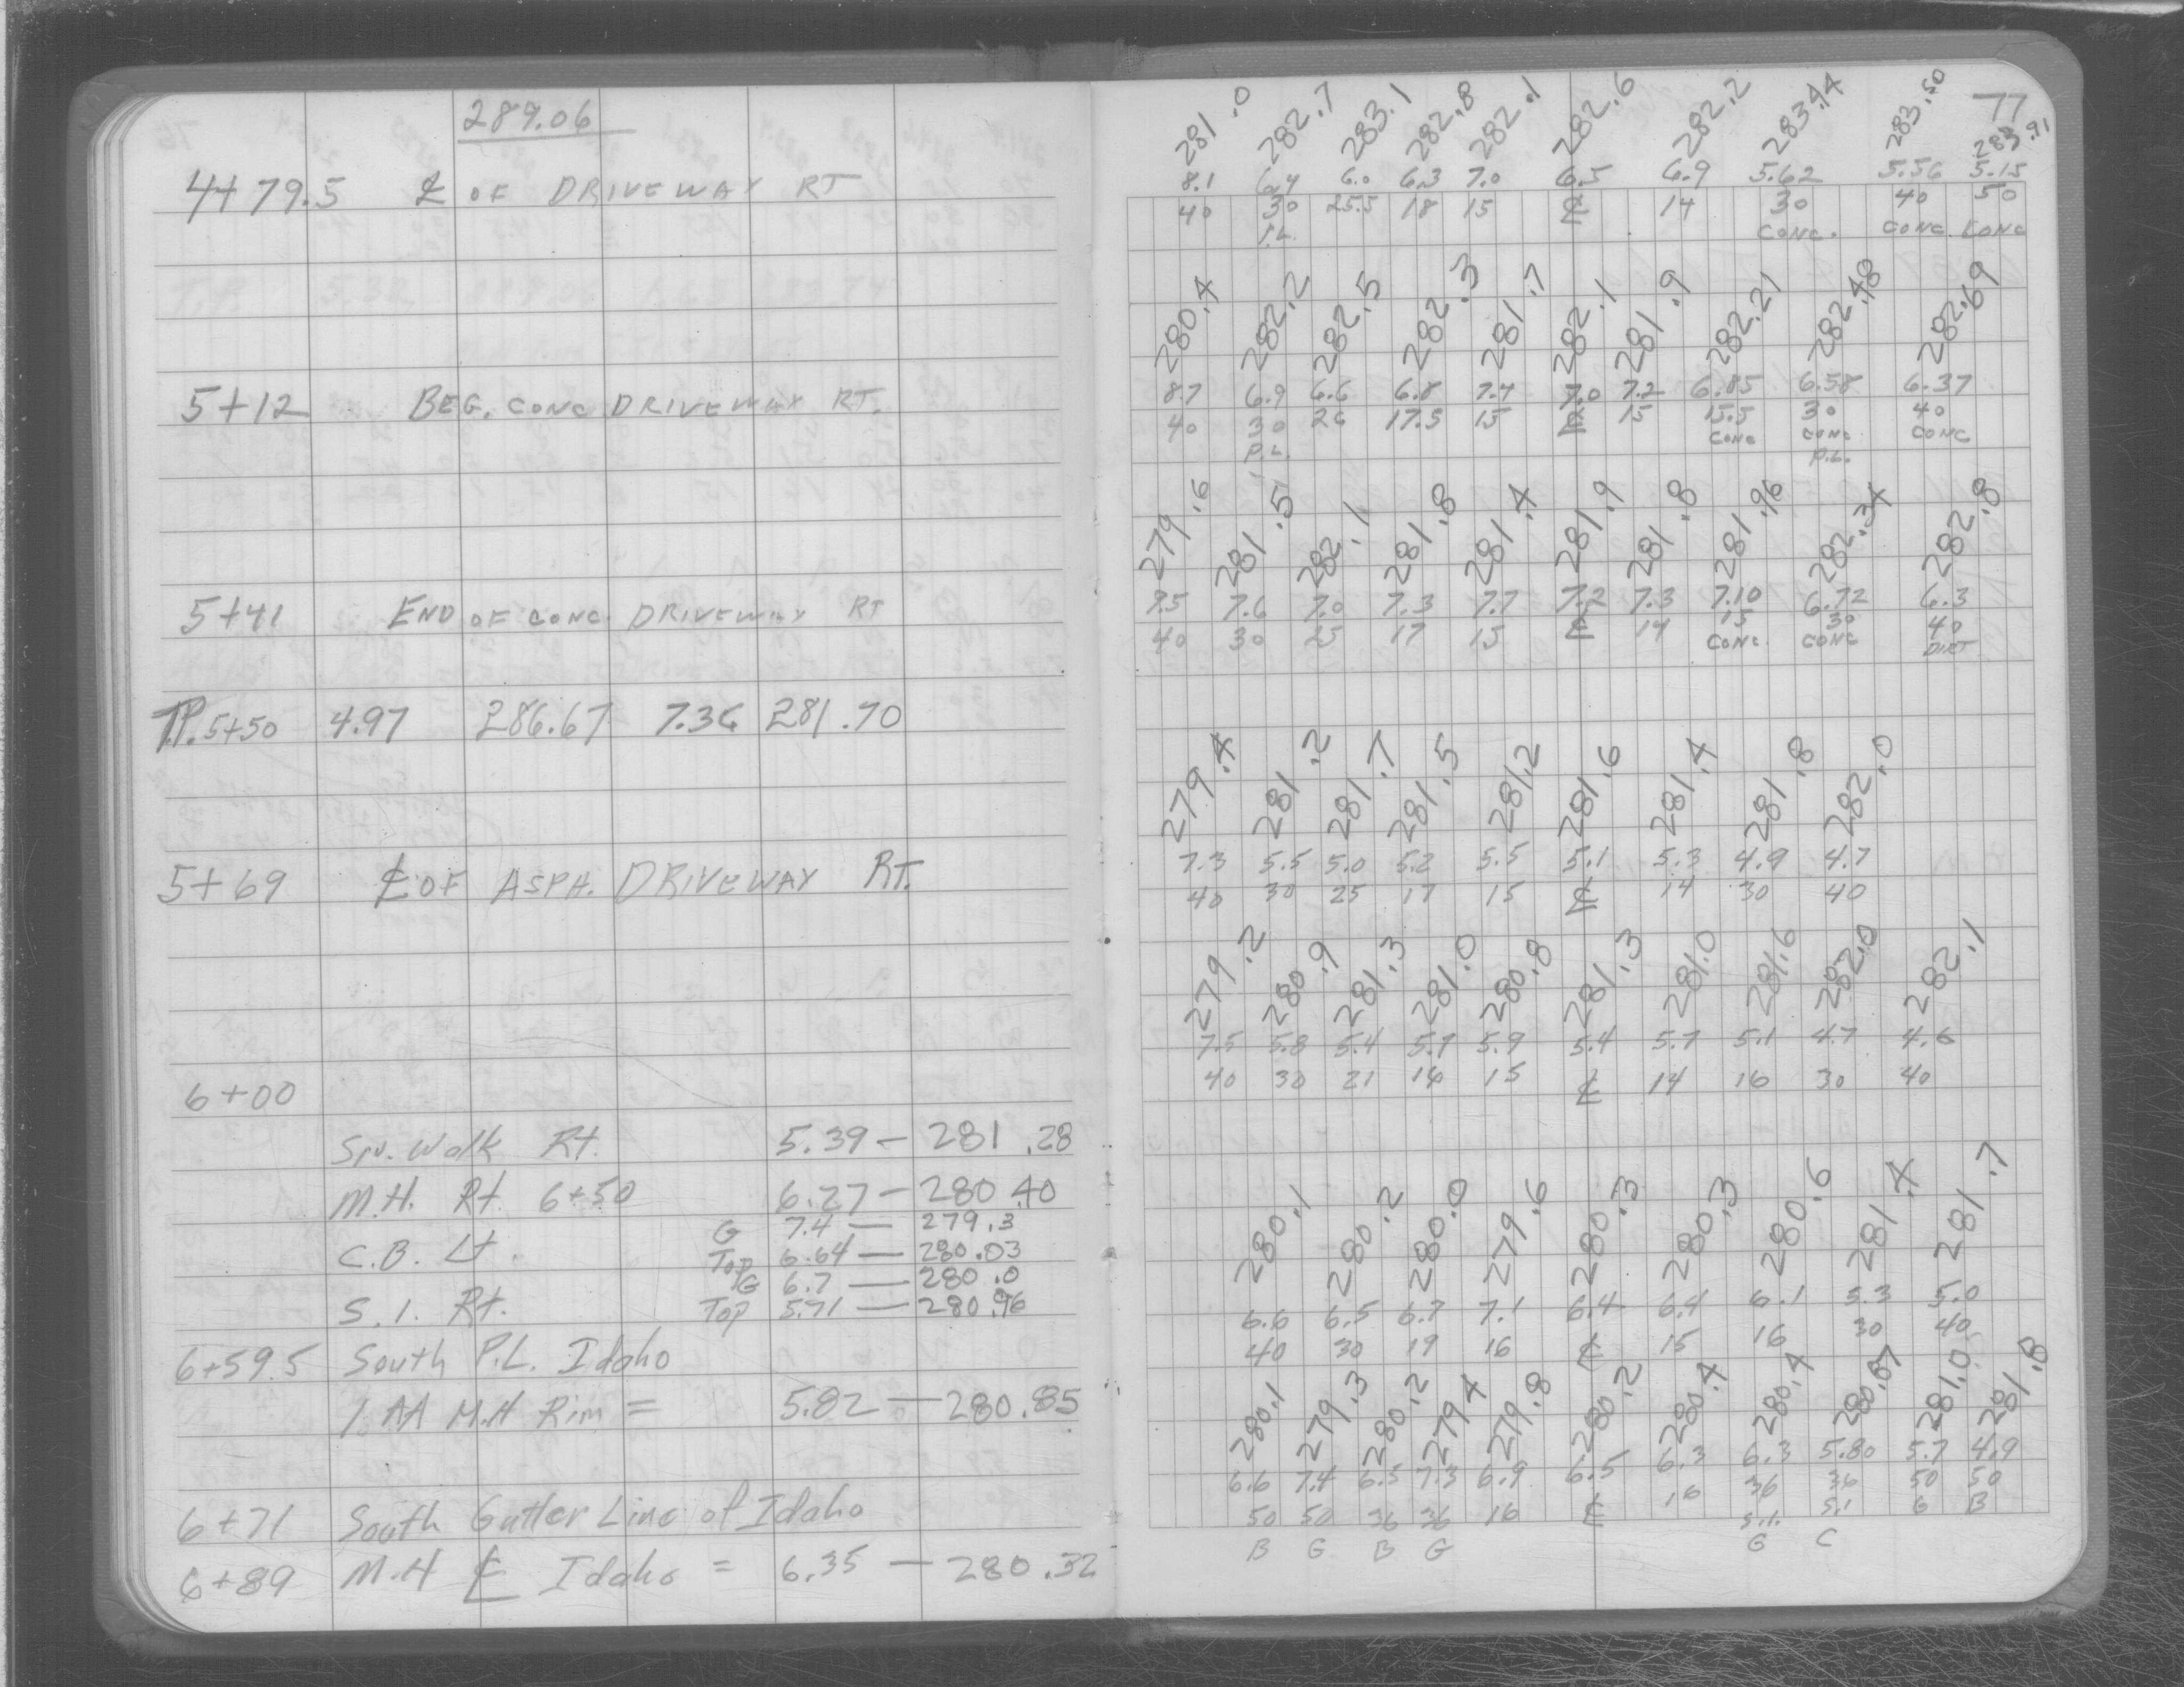 289.06
4+79.5 ℄ OF DRIVEWAY RT
5+12 BEG. CONC DRIVEWAY RT.
5+41 END OF CONC. DRIVEWAY RT
T.P. 5+50 4.97 286.67 7.36 281.70
5+69 ℄ OF ASPH. DRIVEWAY RT.
6+00
SW. Walk Rt. 5.39 — 281.28
M.H. Rt. 6+50 6.27 — 280.40
G 7.4 — 279.3
C.B. Lt. Top 6.64 — 280.03
G 6.7 — 280.0
S.I. Rt. Top 5.71 — 280.96
6+59.5 South P.L. Idaho
M.H Rim = 5.82 — 280.85
6+71 South Gutter Line of Idaho
6+89 M.H ℄ Idaho = 6.35 — 280.32
77
281.0 282.7 283.1 282.8 282.1 282.6 282.2 283.44 283.50 283.91
8.1 6.4 6.0 6.3 7.0 6.5 6.9 5.62 5.56 5.15
40 30 25.5 18 15 ℄ 14 30 40 50
P.L. CONC. CONC. CONC
280.4 282.2 282.5 282.3 281.7 282.1 281.9 282.21 282.48 282.69
8.7 6.9 6.6 6.8 7.4 7.0 7.2 6.85 6.58 6.37
40 30 26 17.5 15 ℄ 15 15.5 30 40
P.L. CONC CONC CONC
P.L.
279.6 281.5 282.1 281.8 281.4 281.9 281.8 281.96 282.34 282.8
9.5 7.6 7.0 7.3 7.7 7.2 7.3 7.10 6.72 6.3
40 30 25 17 15 ℄ 14 15 30 40
CONC. CONC DIRT
279.4 281.2 281.7 281.5 281.2 281.6 281.4 281.8 282.0
7.3 5.5 5.0 5.2 5.5 5.1 5.3 4.9 4.7
40 30 25 17 15 ℄ 14 30 40
279.2 280.9 281.3 281.0 280.8 281.3 281.0 281.6 282.0 282.1
7.5 5.8 5.4 5.7 5.9 5.4 5.7 5.1 4.7 4.6
40 30 21 16 15 ℄ 14 16 30 40
280.1 280.2 280.0 279.6 280.3 280.3 280.6 281.4 281.7
6.6 6.5 6.7 7.1 6.4 6.4 6.1 5.3 5.0
40 30 19 16 ℄ 15 16 30 40
280.1 279.3 280.2 279.4 279.8 280.2 280.4 280.4 280.87 281.0 281.8
6.6 7.4 6.5 7.3 6.9 6.5 6.3 6.3 5.80 5.7 4.9
50 50 36 36 16 ℄ 16 36 36 50 50
S.I. S.I G B
B G B G G C